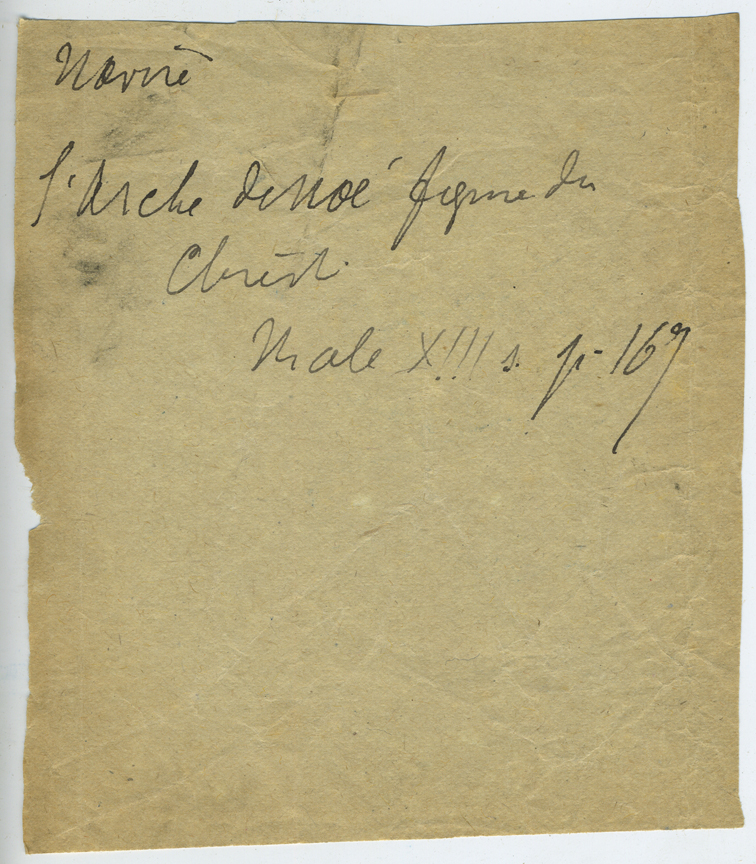 Navire
l'Arche de Noé figure du
Christ.
Male XIII s. p. 167